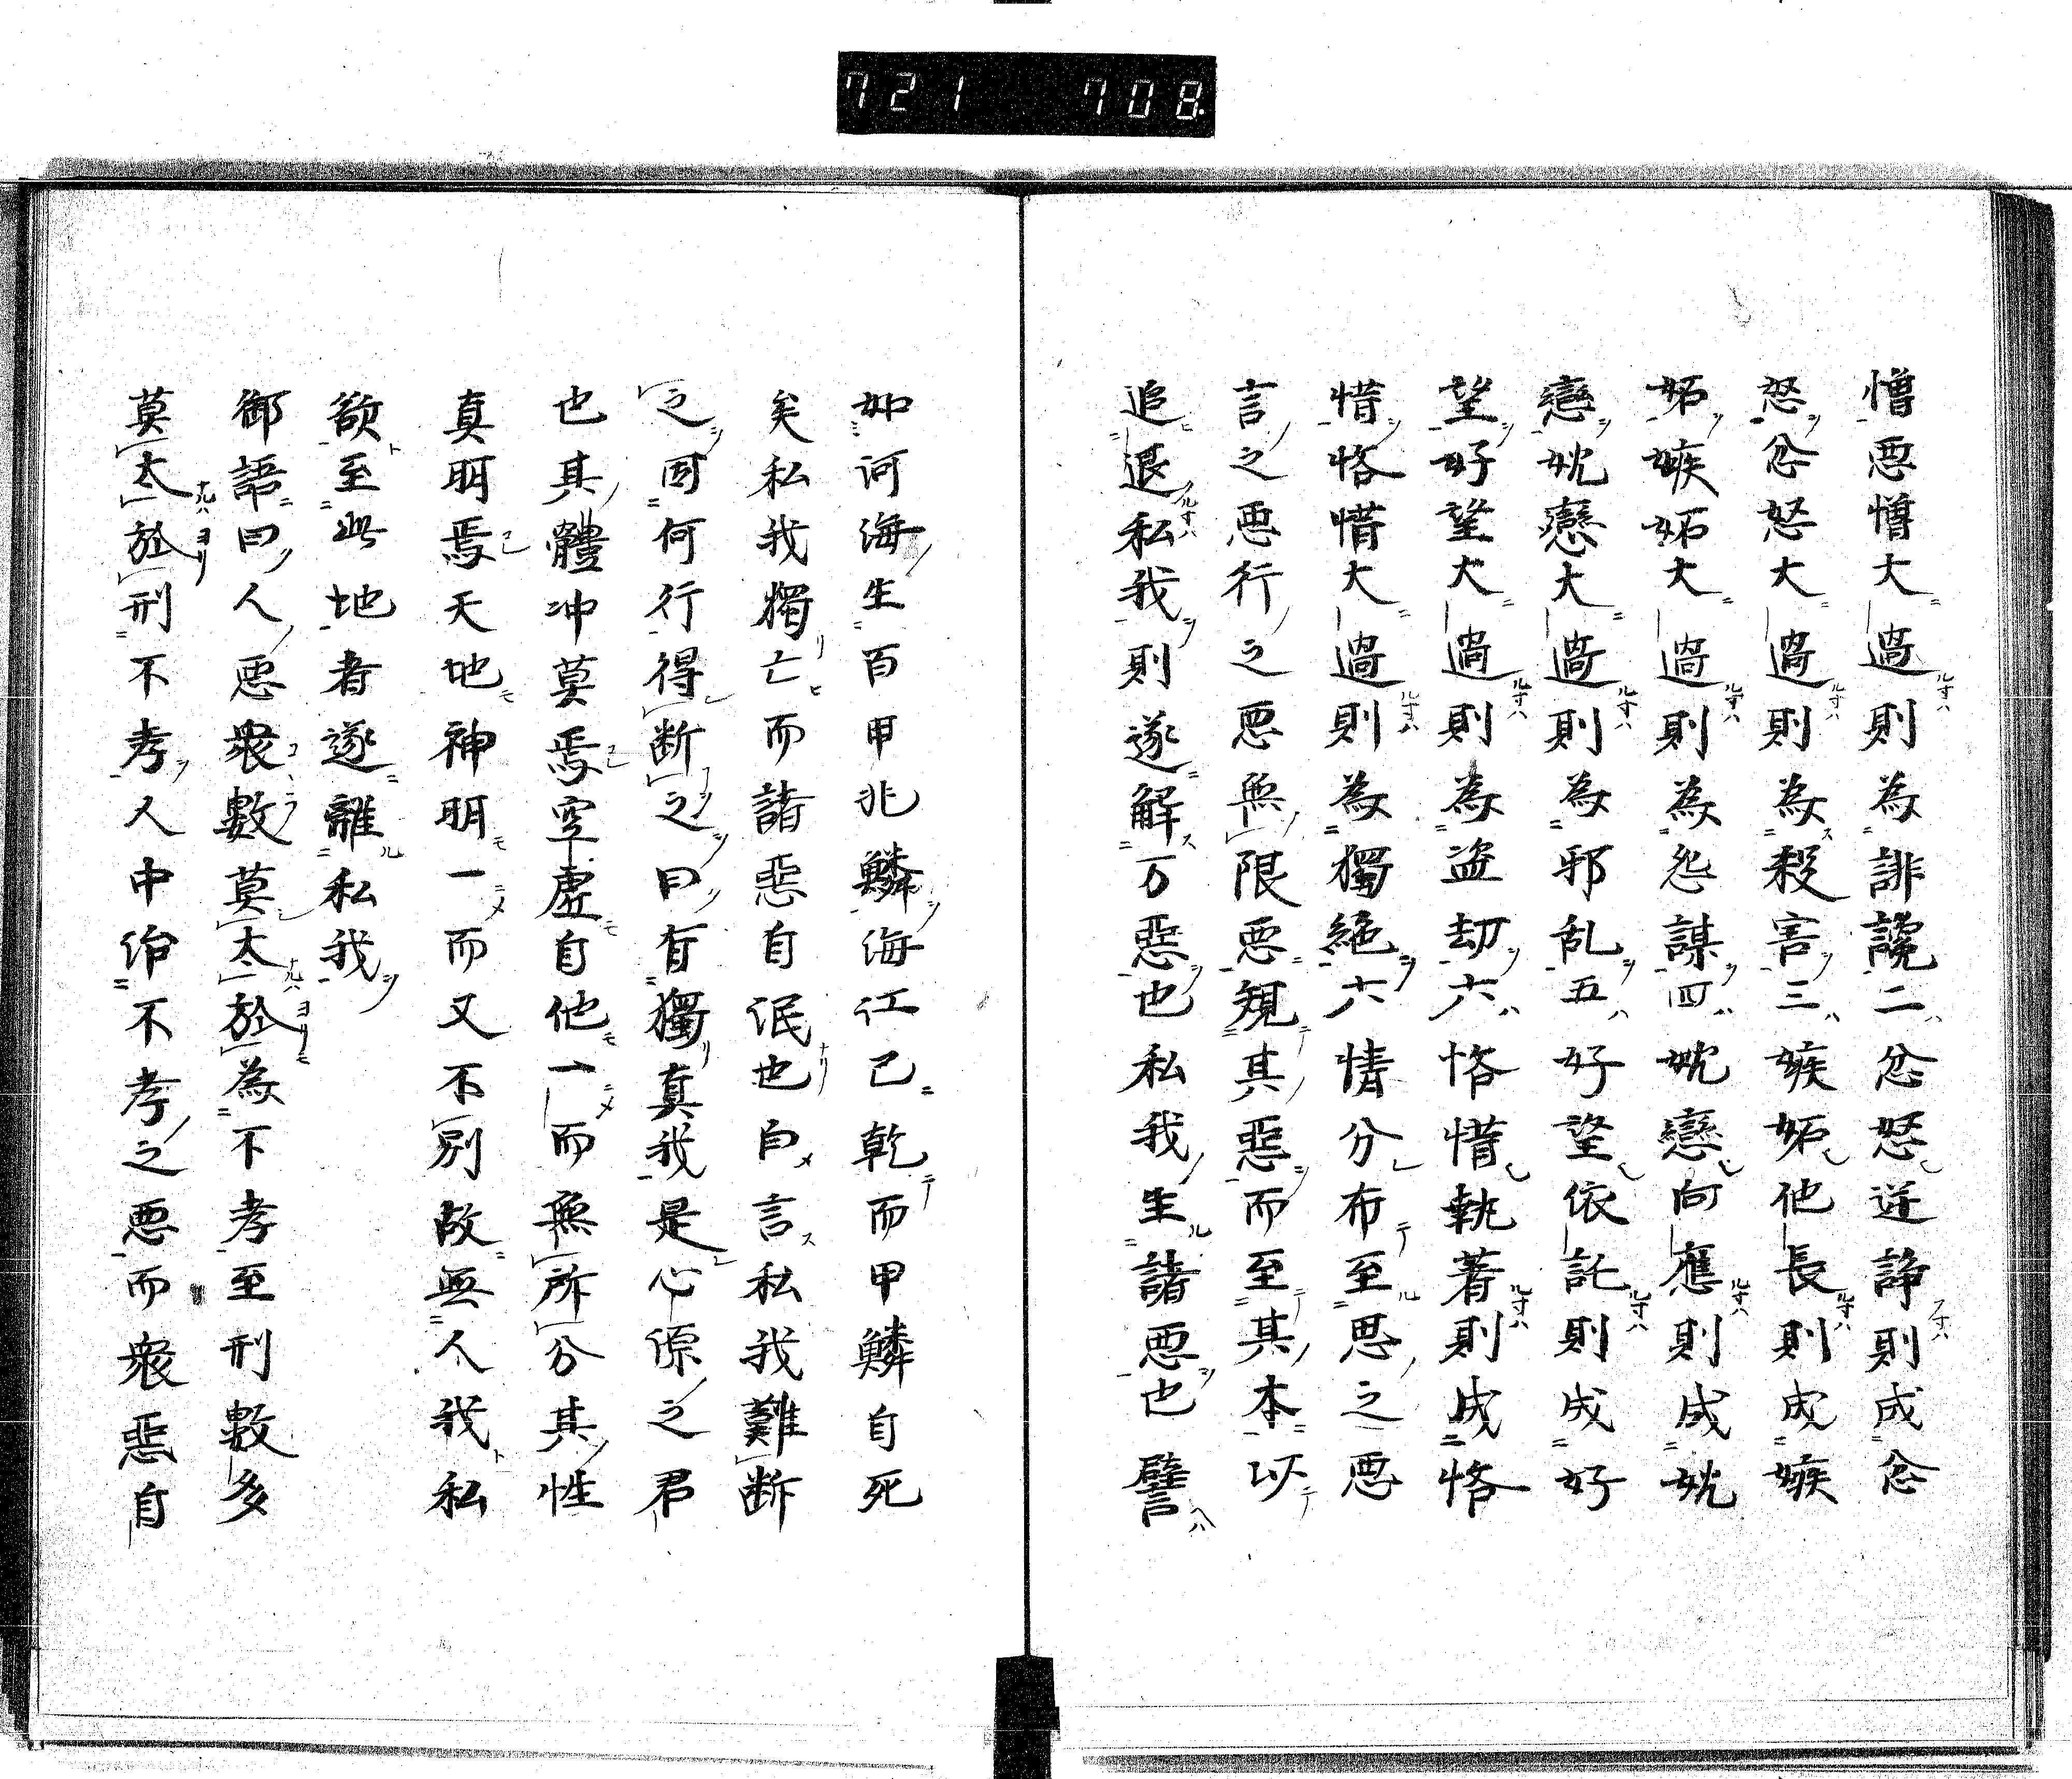 721 708
憎悪憎大過則為誹讒二忿怒逆諍則成忿
怒忿怒大過則為殺害三嫉妬他長則成嫉
妬嫉妬大過則為怨謀四妉戀向應則成妉
戀妉戀大過則為邪乱五好望依託則成好
望好望大過則為盗劫六悋惜執著則成悋
惜悋惜大過則為獨絶六情分布至思之悪
言之悪行之悪無限悪規其惡而至其本以
追退私我則遂解万惡也私我生諸悪也譬
如河海生百甲兆鱗海江己乾而甲鱗自死
矣私我獨亡而諸惡自泯也白言私我難断
之回何行得断之曰有獨真我是心源之君
也其體冲莫焉空虚自他一而無所分其性
真明焉天地神明一而又不別故無人我私
欲至此地者遂離私我
御語曰人悪衆數莫太於為不孝至刑數多
莫太於刑不孝人中治不孝之悪而衆惡自